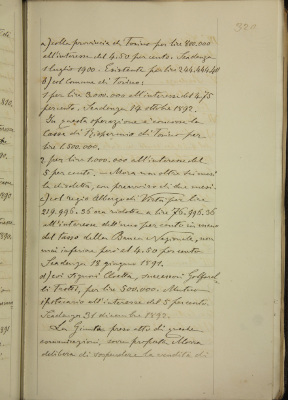 320
a) colla provincia di Torino per lire 800.000
all'interesse del 4.50 per cento. Scadenza
1 luglio 1900. Esistente per lire 244.444.40
b) col comune di Torino:
1º per lire 3.000.000 all'interesse del 4,75
per cento. Scadenza 14 ottobre 1892.
In questa operazione è concorsa la
Cassa di Risparmio di Torino per
lire 1.500.000.
2º per lire 1.000.000 all'interesse del
5 per cento. in Mora non oltre sei mesi
la disdetta, con preavviso di due mesi.
c) col regio Albergo di Virtù per lire
219.496.36 ora ridotte a lire 76.496.36
all'interesse dell'uno per cento in meno
del tasso della Banca Nazionale, non
mai inferiore però al 4.50 per cento
Scadenza 18 giugno 1891.
d) coi signori Cletta, successori
di Trotti, per lire 300.000. Mutuo
ipotecario all'interesse del 5 per cento.
Scadenza 31 dicembre 1892.
La Giunta preso atto di queste
comunicazioni, come proposta Mora
delibera di sospendere la vendita di